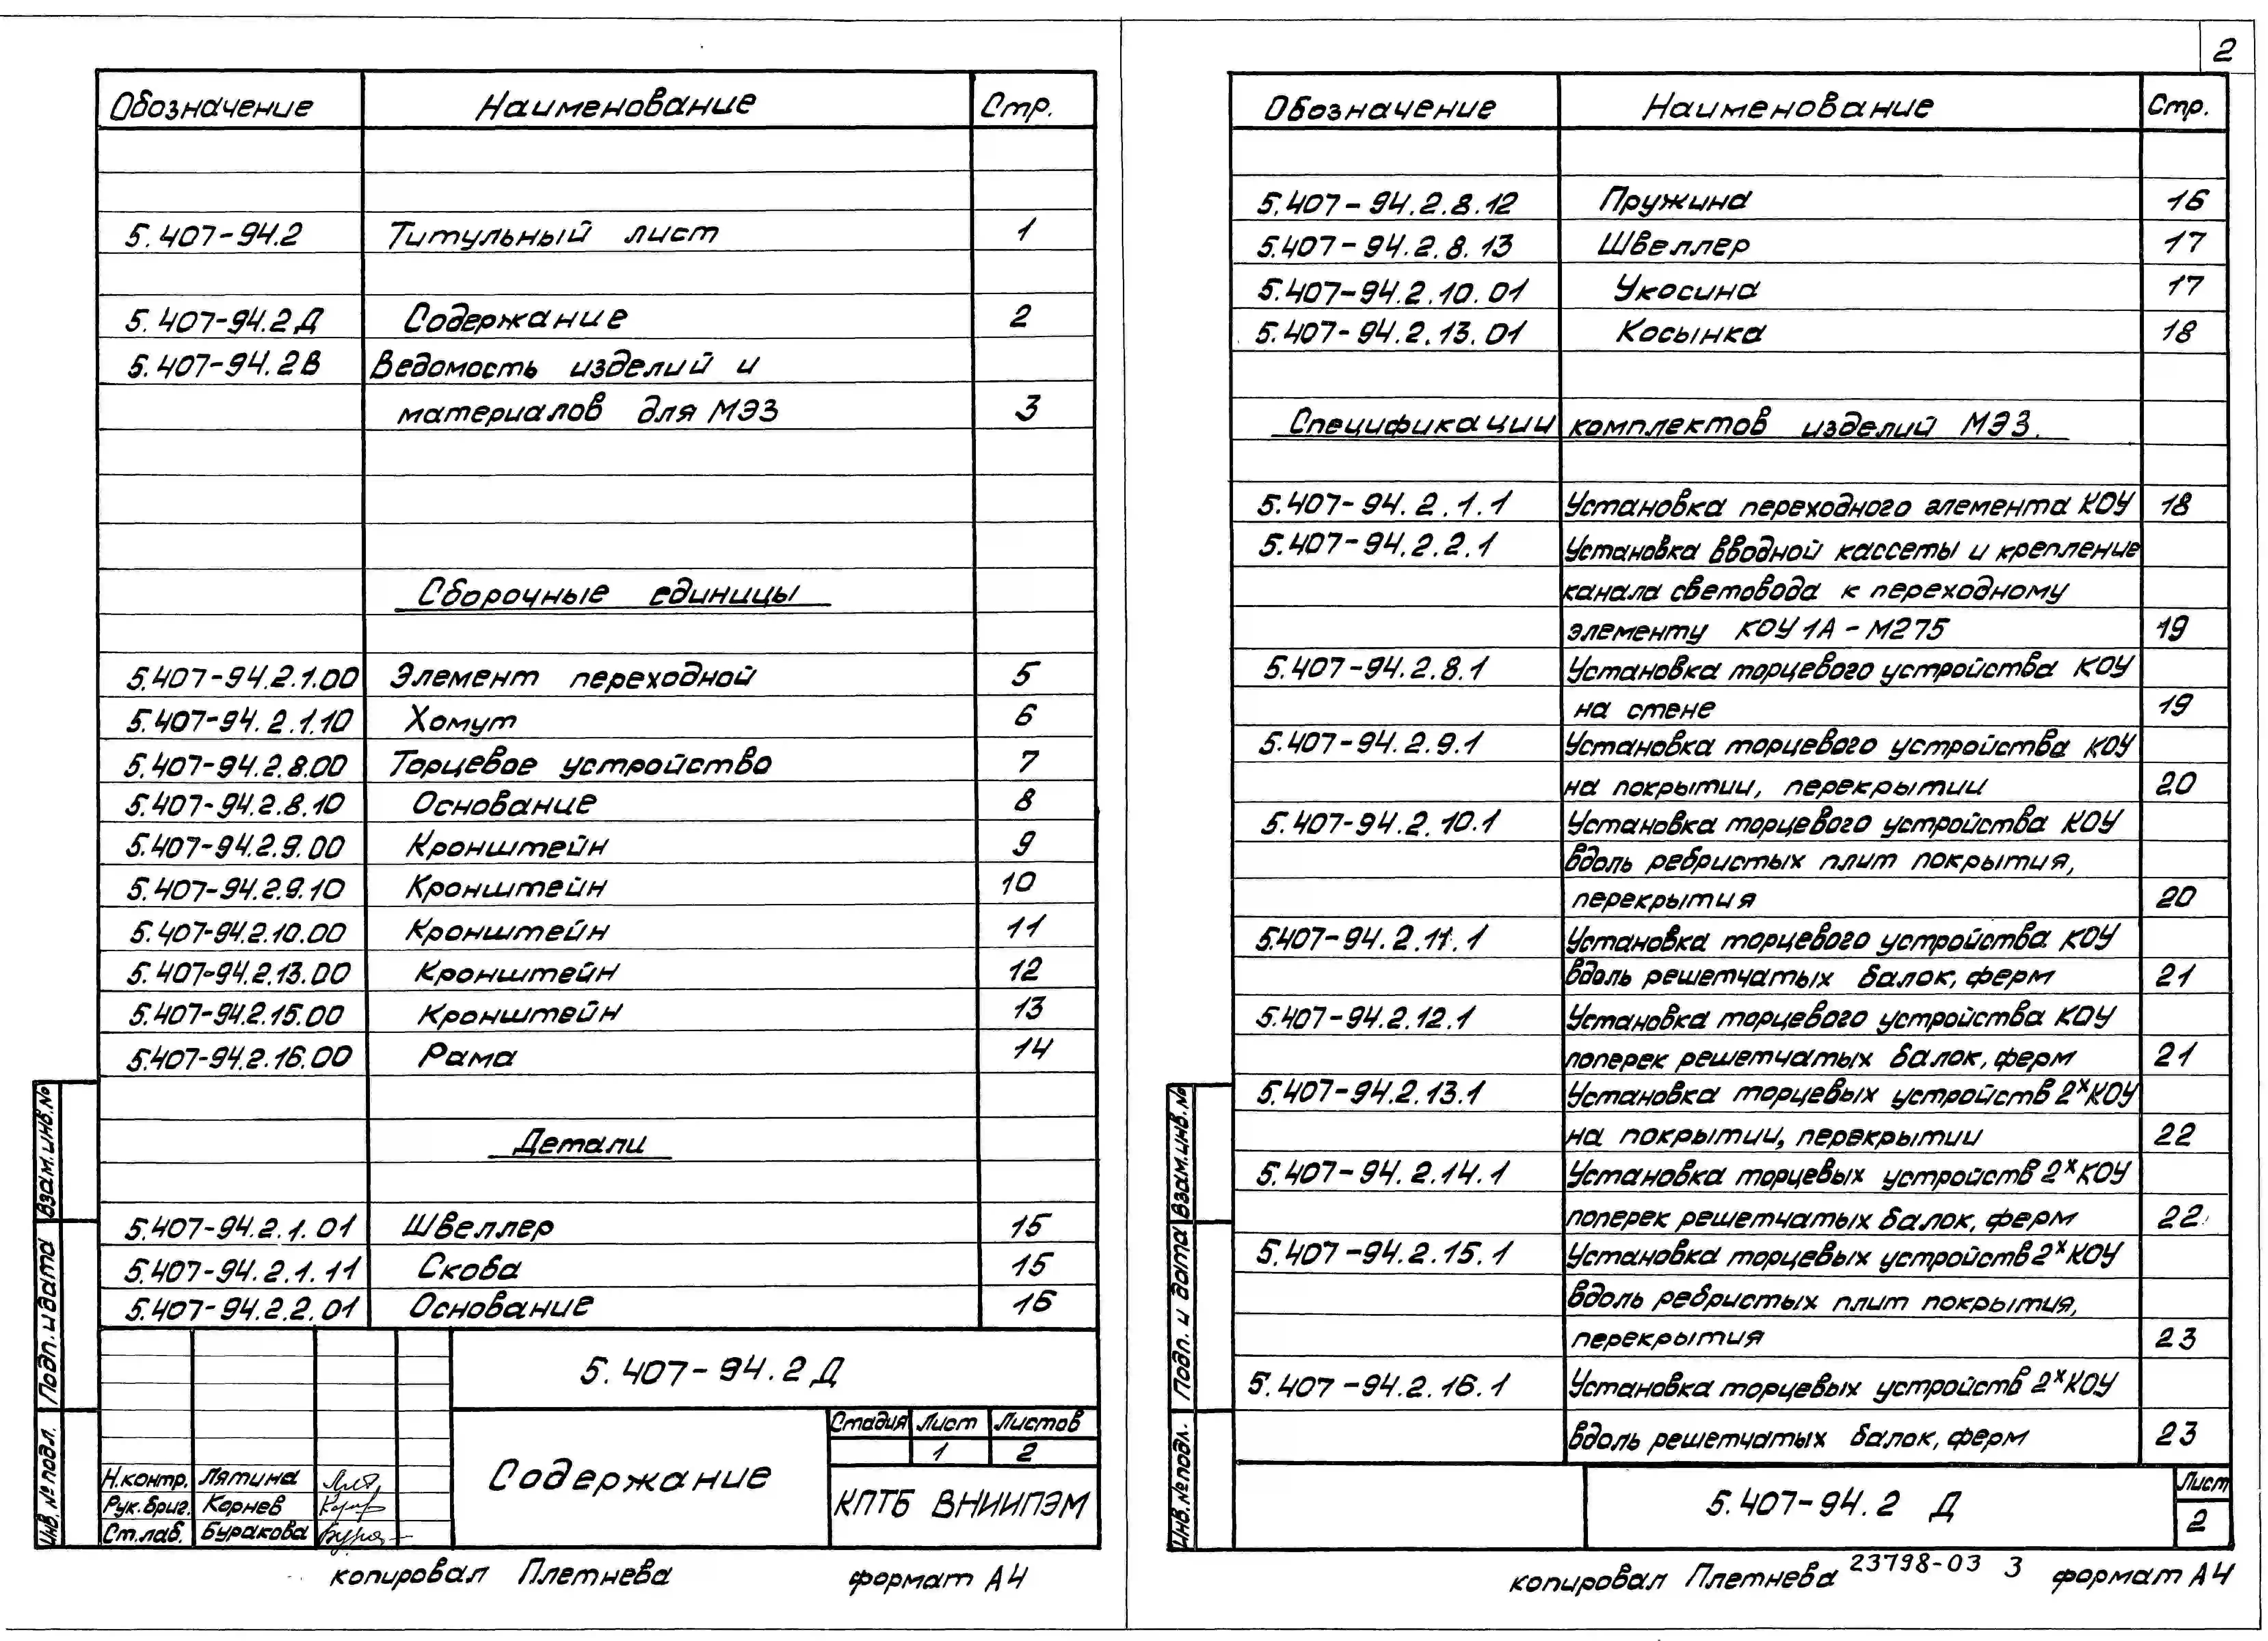 Обозначение Наименование Стр.
5.407-94.2 Титульный лист 1
5.407-94.2Д Содержание 2
5.407-94.2В Ведомость изделий и
материалов для МЭЗ 3
Сборочные единицы
5.407-94.2.1.00 Элемент переходной 5
5.407-94.2.1.10 Хомут 6
5.407-94.2.8.00 Торцевое устройство 7
5.407-94.2.8.10 Основание 8
5.407-94.2.9.00 Кронштейн 9
5.407-94.2.9.10 Кронштейн 10
5.407-94.2.10.00 Кронштейн 11
5.407-94.2.13.00 Кронштейн 12
5.407-94.2.15.00 Кронштейн 13
5.407-94.2.16.00 Рама 14
Детали
5.407-94.2.1.01 Швеллер 15
5.407-94.2.1.11 Скоба 15
5.407-94.2.2.01 Основание 16
5.407-94.2Д
Стадия Лист Листов
1 2
Содержание
КПТБ ВНИИПЭМ
Н.контр. Лятина
Рук.бриг. Корнев
Ст.лаб. Буракова
Взам.инв.№
Подп. и дата
Инв.№подл.
копировал Плетнева формат А4
2
Обозначение Наименование Стр.
5.407-94.2.8.12 Пружина 16
5.407-94.2.8.13 Швеллер 17
5.407-94.2.10.01 Укосина 17
5.407-94.2.13.01 Косынка 18
Спецификации комплектов изделий МЭЗ.
5.407-94.2.1.1 Установка переходного элемента КОУ 18
5.407-94.2.2.1 Установка вводной кассеты и крепление
канала световода к переходному
элементу КОУ1А-М275 19
5.407-94.2.8.1 Установка торцевого устройства КОУ
на стене 19
5.407-94.2.9.1 Установка торцевого устройства КОУ
на покрытии, перекрытии 20
5.407-94.2.10.1 Установка торцевого устройства КОУ
вдоль ребристых плит покрытия,
перекрытия 20
5.407-94.2.11.1 Установка торцевого устройства КОУ
вдоль решетчатых балок, ферм 21
5.407-94.2.12.1 Установка торцевого устройства КОУ
поперек решетчатых балок, ферм 21
5.407-94.2.13.1 Установка торцевых устройств 2ˣКОУ
на покрытии, перекрытии 22
5.407-94.2.14.1 Установка торцевых устройств 2ˣКОУ
поперек решетчатых балок, ферм 22
5.407-94.2.15.1 Установка торцевых устройств 2ˣКОУ
вдоль ребристых плит покрытия,
перекрытия 23
5.407-94.2.16.1 Установка торцевых устройств 2ˣКОУ
вдоль решетчатых балок, ферм 23
5.407-94.2 Д
Лист
2
Взам.инв.№
Подп. и дата
Инв.№подл.
копировал Плетнева 23798-03 3 формат А4